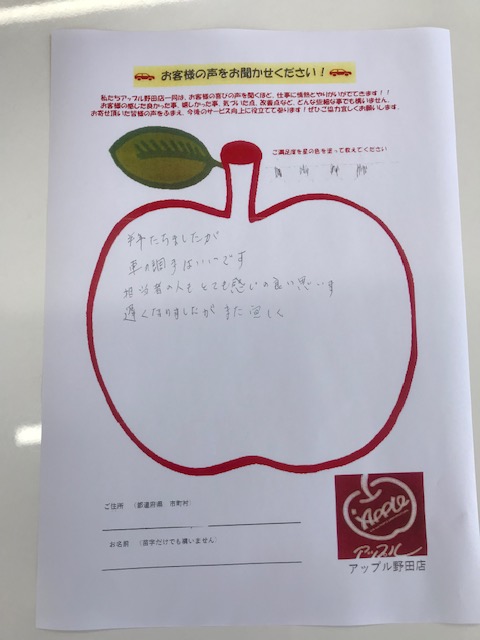 お客様の声をお聞かせください！
私たちアップル野田店一同は、お客様の喜びの声を聞くほど、仕事に情熱とやりがいがでてきます！！
お客様の感じた良かった事、嬉しかった事、気づいた点、改善点など、どんな些細な事でも構いません。
お寄せ頂いた皆様の声をふまえ、今後のサービス向上に役立てて参ります！ぜひご協力宜しくお願いします。
ご満足度を星の色を塗って教えてください
半年たちましたが
車の調子はいいです
担当者の人も とても感じの良い思います
遅くなりましたが また宜しく
ご住所 （都道府県 市町村）
お名前 （苗字だけでも構いません）
Apple
アップル
アップル野田店